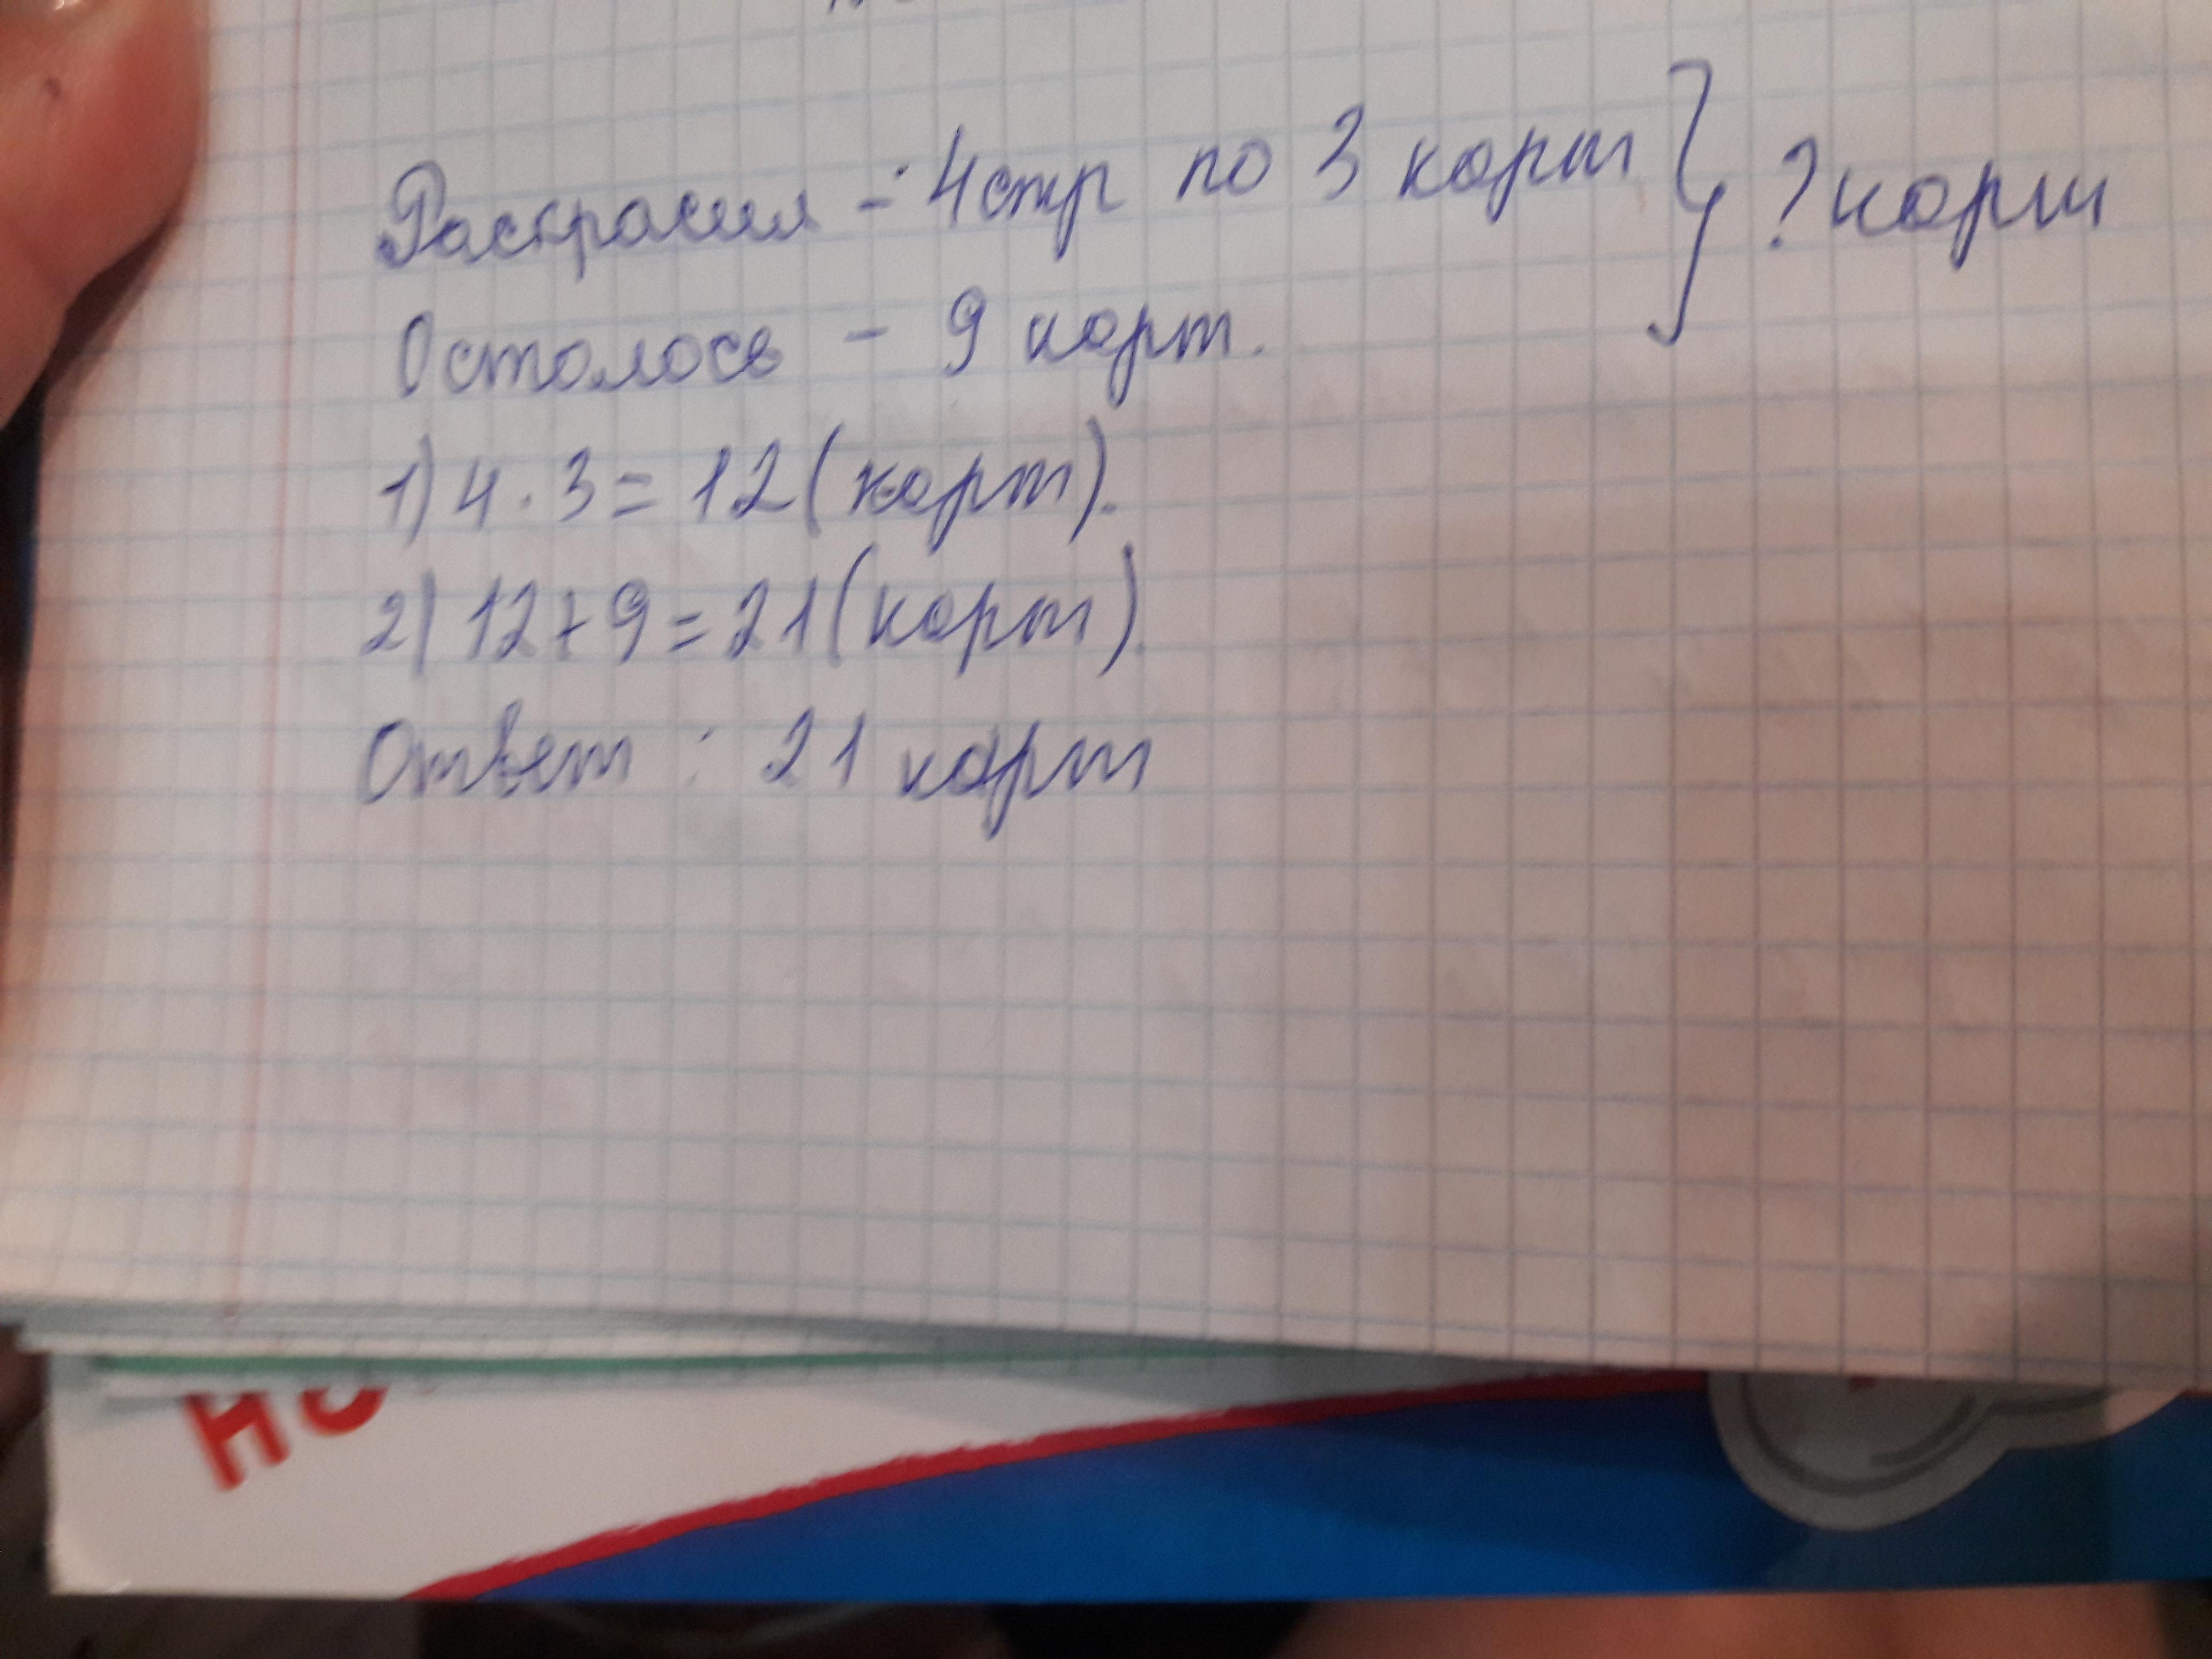 Раскрасил - 4 стр по 3 карт } ? карт
Осталось - 9 карт.
1) 4 · 3 = 12 (карт).
2) 12 + 9 = 21 (карт).
Ответ: 21 карт